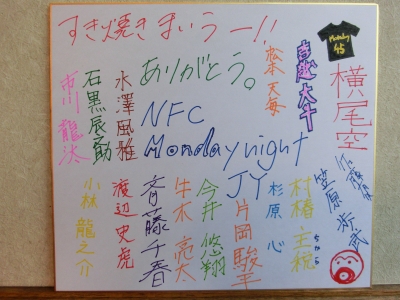 すき焼きまいうー!!
ありがとう。
NFC
Monday night
JY
Monday
45
松本天毎
吉越大十
横尾空
市川龍汰
石黒辰之助
水澤風雅
小林龍之介
渡辺史虎
斉藤千春
牛木亮太
今井悠翔
片岡駿
杉原心
村椿主祝
ちから
笠原歩武